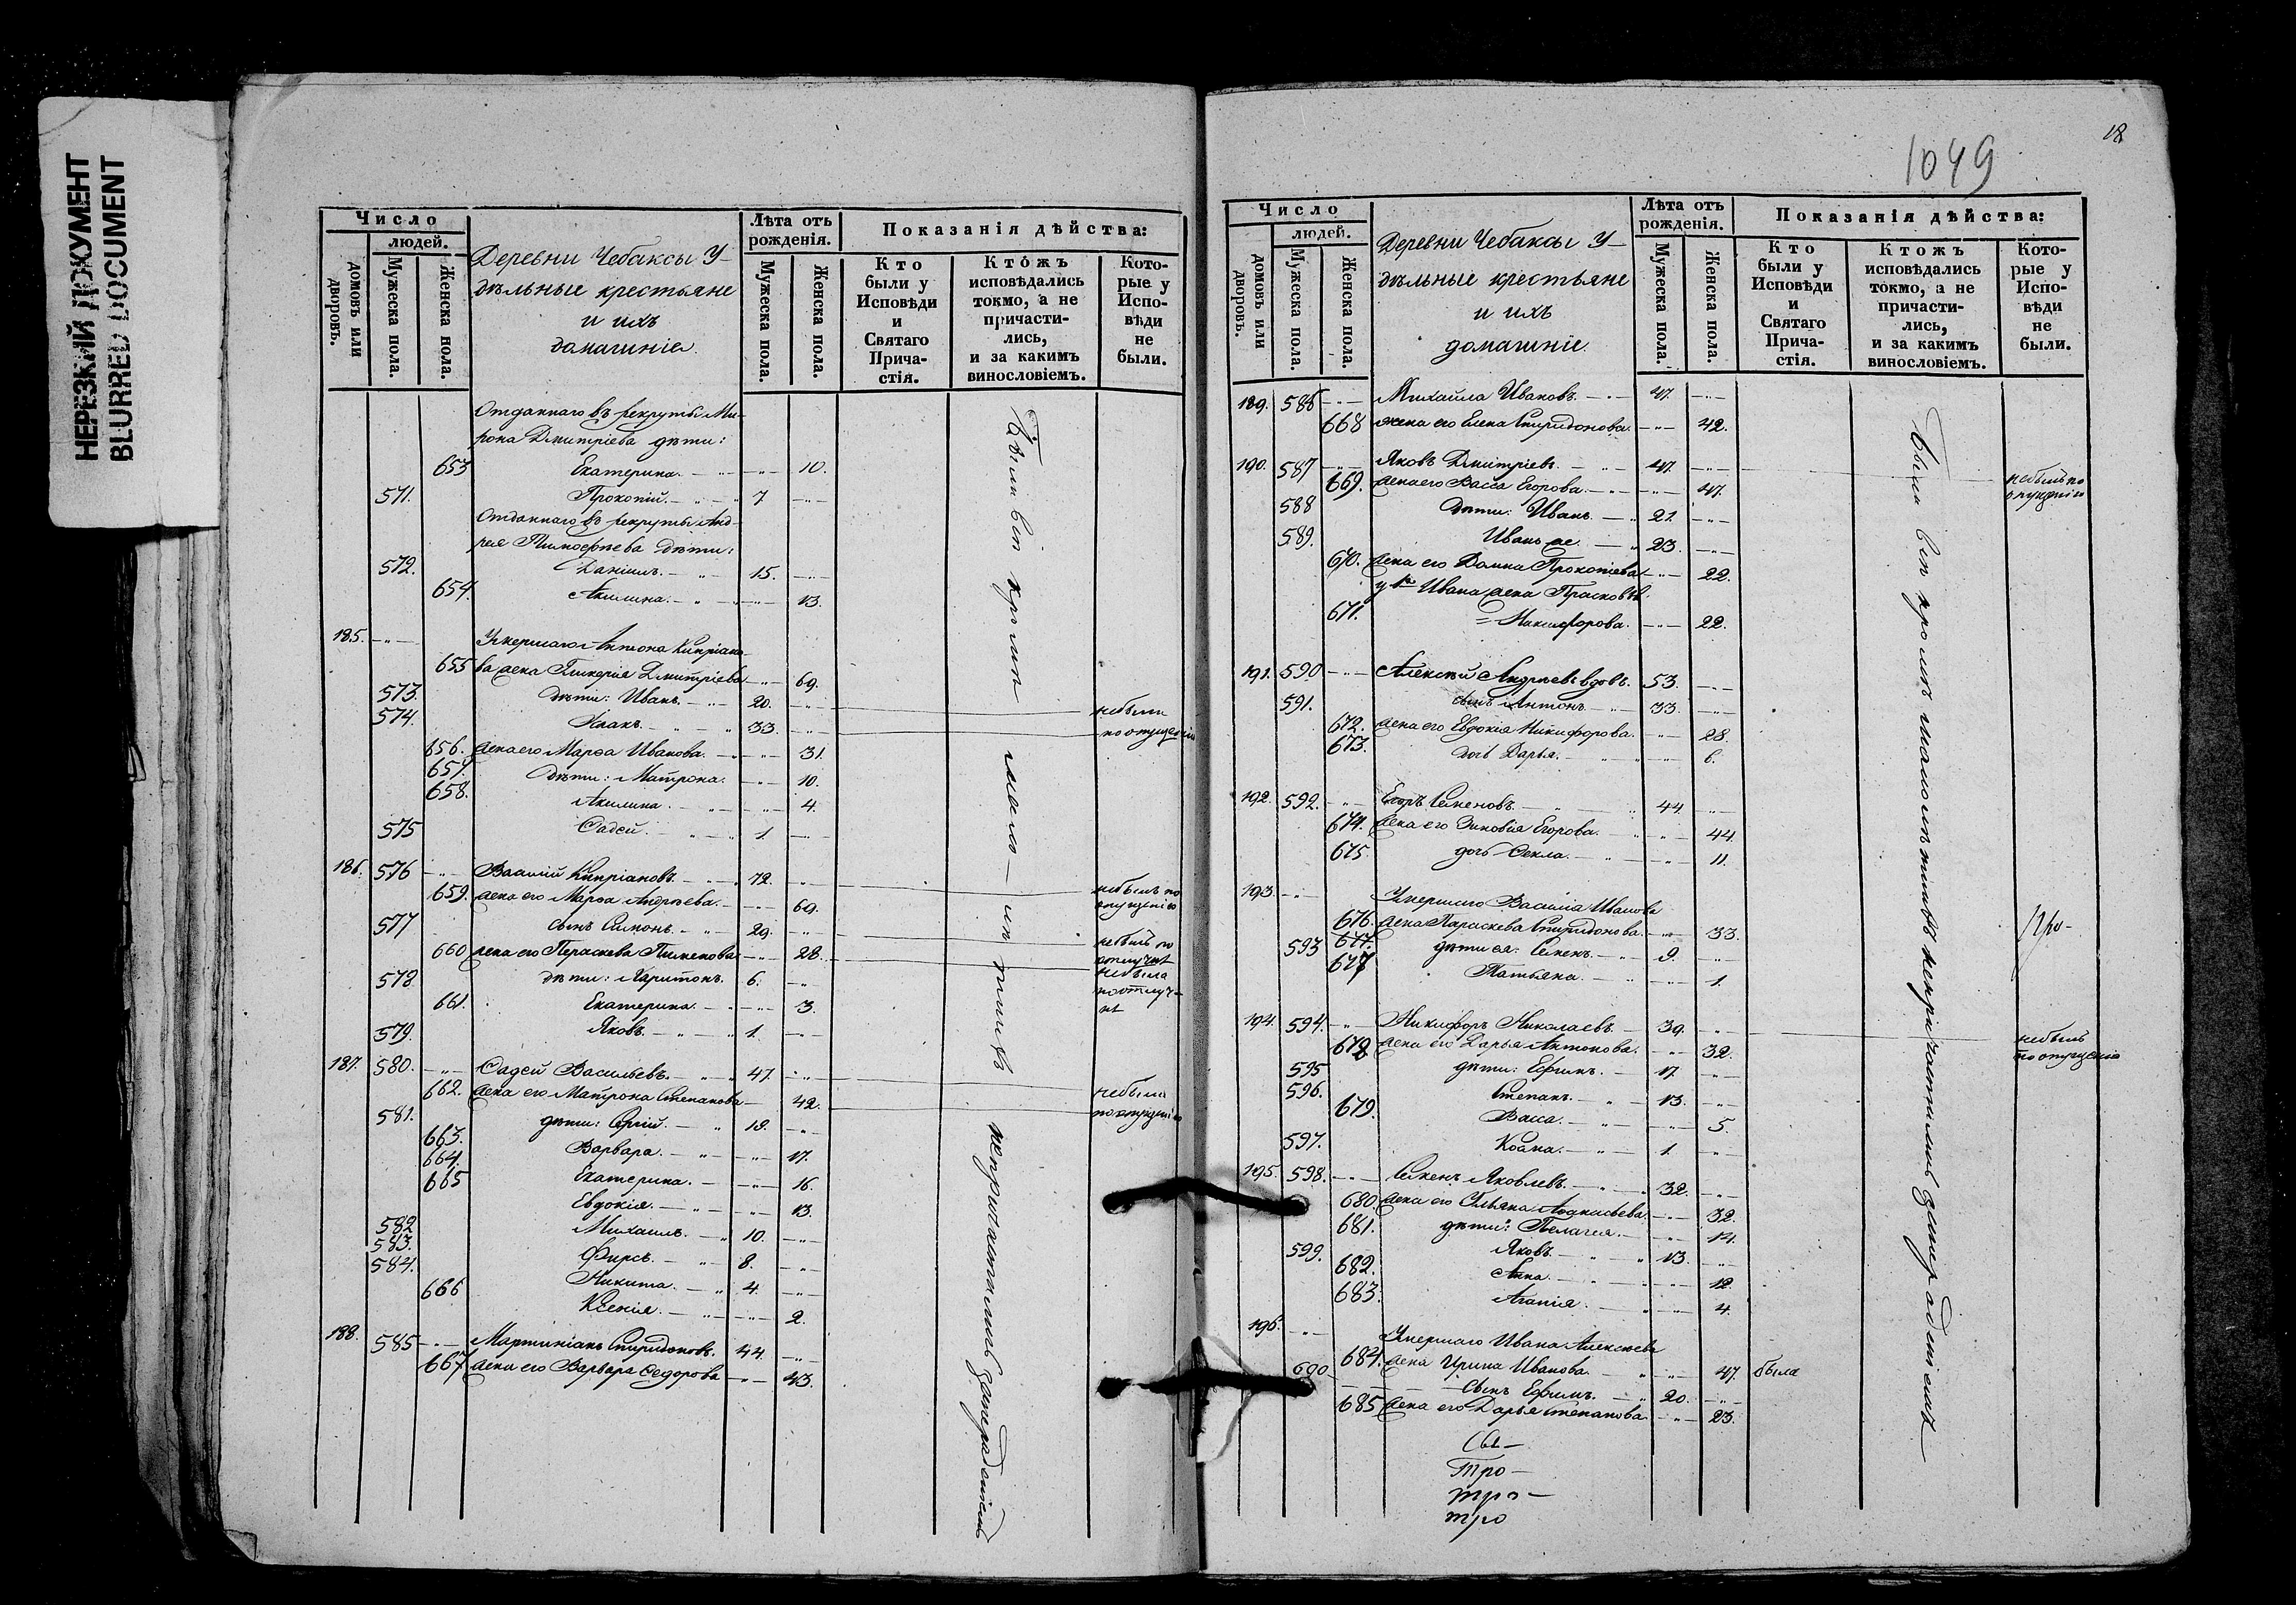 НЕРЕЗКИЙ ДОКУМЕНТ
BLURRED DOCUMENT
Число
людей.
домовъ или дворовъ.
Мужеска пола.
Женска пола.
Деревни Чебаксы У-
дѣльные крестьяне
и ихъ
домашніе.
Лѣта отъ рожденія.
Мужеска пола.
Женска пола.
Показанія дѣйства:
Кто были у Исповѣди и Святаго Прича-стія.
Ктожъ исповѣдались токмо, а не причасти-лись, и за какимъ винословіемъ.
Кото-рые у Испо-вѣди не были.
Отданнаго въ рекруты Ми-
рона Дмитріева дѣти:
653 Екатерина. 10.
571. Прокопій. 7
Отданнаго въ рекруты Анд-
рея Тимофѣева дѣти:
572. Даніилъ. 15.
654. Акилина. 13.
185. Умершаго Антона Кипріано-
655 ва жена Гликерія Дмитріева 69.
573. дѣти: Иванъ. 20. небыли
574. Исаакъ. 33. по опущенію
656. жена его Марѳа Иванова. 31.
657. дѣти: Матрона. 10.
658. Акилина. 4.
575 Ѳадей. 1.
186. 576 Василій Кипріановъ. 72. небылъ по
659. жена его Марѳа Андреева. 69. опущенію
577 сынъ Симонъ. 29. небылъ по
660 жена его Пераскева Пименова 28. отлучкѣ
578 дѣти: Харитонъ. 6. небыла
661. Екатерина. 3. по отлуч-
кѣ
579. Яковъ. 1.
187. 580. Ѳадей Васильевъ. 47.
662. жена его Матрона Степанова 42. небыли
581. дѣти: Сергій. 19. по опущенію
663. Варвара. 17.
664. Екатерина. 16.
665 Евдокія. 13.
582 Михаилъ. 10.
583. Фирсъ. 8.
584. Никита. 4.
666 Ксенія. 2.
188. 585 Мартиніанъ Спиридоновъ. 44.
667 жена его Варвара Ѳедорова 43.
Были всѣ кромѣ малолѣтнихъ непричастились за нерадѣніемъ
18
1049
Число
людей.
домовъ или дворовъ.
Мужеска пола.
Женска пола.
Деревни Чебаксы У-
дѣльные крестьяне
и ихъ
домашніе.
Лѣта отъ рожденія.
Мужеска пола.
Женска пола.
Показанія дѣйства:
Кто были у Исповѣди и Святаго Прича-стія.
Ктожъ исповѣдались токмо, а не причасти-лись, и за какимъ винословіемъ.
Кото-рые у Испо-вѣди не были.
189. 586 Михайла Ивановъ. 47.
668 жена его Елена Спиридонова. 42.
190. 587 Яковъ Дмитріевъ. 47. небылъ по
669. жена его Васса Егорова. 47. опущенію
588 дѣти: Иванъ. 21.
589. Иванъ же. 23.
670. жена его Домна Прокопіева 22.
у 1го Ивана жена Прасковья
671. Никифорова. 22.
191. 590 Алексѣй Андреевъ вдовъ. 53.
591. сынъ Антонъ 33.
672. жена его Евдокія Никифорова. 28.
673. дочь Дарья. 6.
192. 592. Егоръ Семеновъ. 44.
674. жена его Зиновія Егорова. 44.
675. дочь Ѳекла. 11.
193. Умершаго Василія Иванова
676. жена Параскева Спиридонова. 33.
593 677. дѣти ея: Семенъ. 9.
677 Татьяна. 1.
194. 594. Никифоръ Николаевъ. 39. небылъ
678 жена его Дарья Антонова. 32. по опущенію
595 дѣти: Ефимъ. 17.
596. Степанъ. 13.
679. Васса. 5.
597. Косма. 1.
195. 598. Семенъ Яковлевъ. 32.
680. жена его Ульяна Аѳанасьева. 32.
681. дѣти: Пелагея. 14.
599. Яковъ. 13.
682. Анна. 12.
683. Агапія. 4.
196. Умершаго Ивана Алексѣева
684. жена Ирина Иванова. 47. была
690 сынъ Ефимъ. 20.
685 жена его Дарья Степанова 23.
Тро-
тро-
тро
Были всѣ кромѣ малолѣтнихъ непричастились за нерадѣніемъ